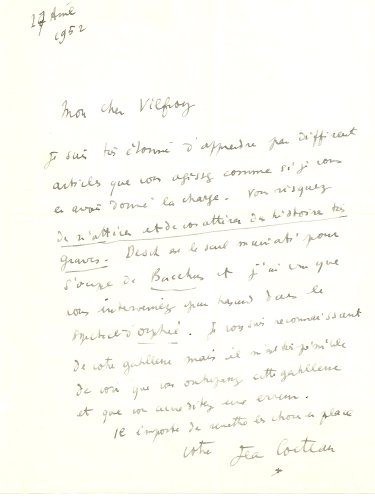 17 Avril
1952
Mon cher Vilfroy
Je suis très étonné d'apprendre par différent
articles que vous agissez comme si je vous
en avais donné la charge. Vous risquez
de m'attirer et de vous attirer des histoires très
graves. est le seul mandaté pour
s'occuper de Bacchus et j'ai cru que
vous interveniez par hasard dans le
spectacle d'orphée. Je vous suis reconnaissant
de votre gentillesse mais il m'est pénible
de voir que vous outrepassez cette gentillesse
et que vous accréditez une erreur.
Il importe de remettre les choses en place
votre Jean Cocteau
*